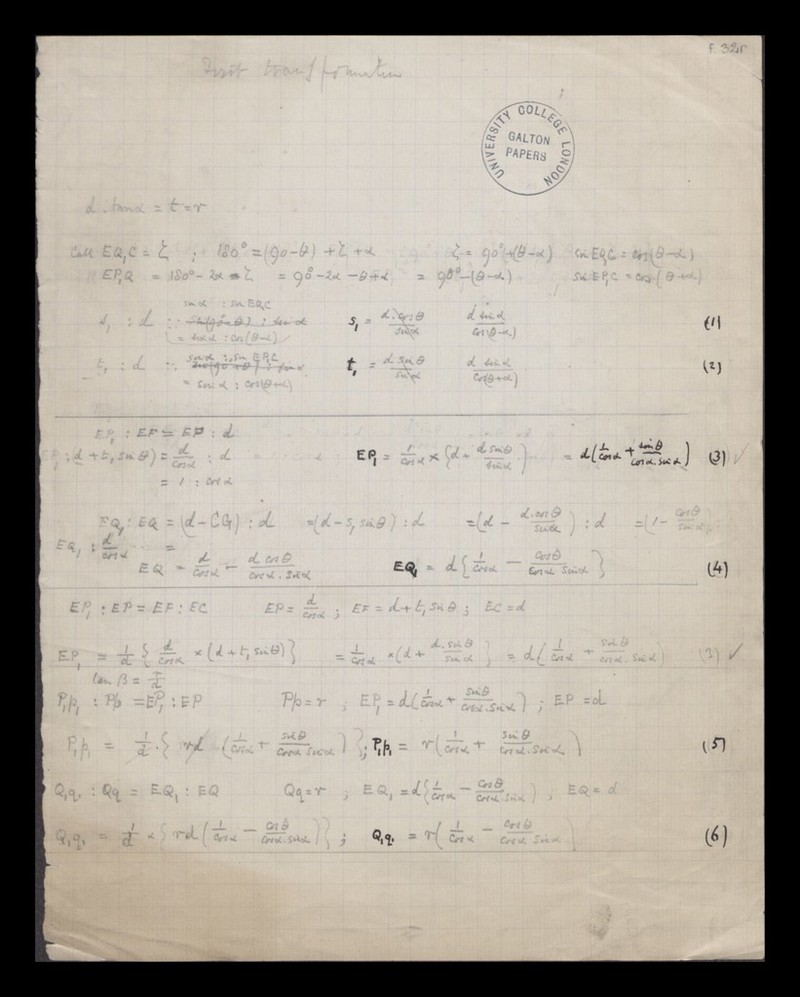 F. 32r
First transformation
UNIVERSITY COLLEGE LONDON
GALTON
PAPERS
d . tan α = t = r
Call EQ,C = ζ ; 180° = (90-θ) + ζ + α ζ = 90°+(θ-α) sin EQ,C = cos(θ-α)
EP,Q = 180° - 2α - ζ = 90° - 2α - θ + α = 90° - (θ-α) sin EP,C = cos(θ+α)
sin α : sin EQC
s₁ : d :: s₁ = d. cos θ / sin α d sin α / cos(θ-α) (1)
= sin α : cos(θ-α)
sin α : sin EP,C
t₁ : d :: t₁ = d sin θ / sin α d sin α / cos(θ+α) (2)
= sin α : cos(θ+α)
EP₁ : EF = EP : d
EP₁ : (d + t₁ sin θ) = d / cos α : d EP₁ = 1 / cos α × {d + d sin θ / sin α} = d(1 / cos α + sin θ / cos α. sin α) (3) ✓
= 1 : cos α
EQ₁ : EQ = (d - CG) : d = (d - s₁ sin θ) : d = (d - d. cos θ / sin α) : d = (1 - cos θ / sin α)
EQ₁ : d / cos α =
EQ = d / cos α - d cos θ / cos α . sin α EQ₁ = d{1 / cos α - cos θ / cos α sin α} (4)
EP₁ : EP = EF : EC EP = d / cos α ; EF = d + t₁ sin θ ; EC = d
EP₁ = 1 / d {d / cos α × (d + t₁ sin θ)} = 1 / cos α × (d + d. sin θ / sin α) = d(1 / cos α + sin θ / cos α. sin α) (3) ✓
tan β = r / d
P₁p₁ : Pp = EP₁ : EP Pp = r ; EP₁ = d(1 / cos α + sin θ / cos α. sin α) ; EP = d
P₁p₁ = 1 / d . {rd (1 / cos α + sin θ / cos α sin α)} ; P₁p₁ = r(1 / cos α + sin θ / cos α. sin α) (5)
Q₁q₁ : Qq = EQ₁ : EQ Qq = r ; EQ₁ = d{1 / cos α - cos θ / cos α. sin α) ; EQ = d
Q₁q₁ = 1 / d × {rd (1 / cos α - cos θ / cos α. sin α)} ; Q₁q₁ = r(1 / cos α - cos θ / cos α sin α) (6)